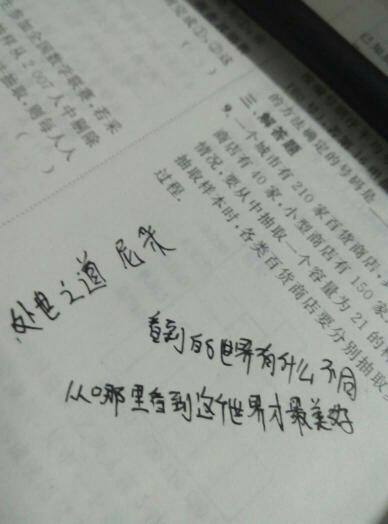 完成①、②这
在参加全国数学联赛,若采
样从2 007人中剔除
抽取,则每人入
(    )
的方法确定的号码是
三、解答题
9. 一个城市有210家百货商店,
商店有40家,小型商店有150家
情况,要从中抽取一个容量为21的
抽取样本时,各类百货商店要分别抽取
过程.
处世之道 尼采
看到的世界有什么不同
从哪里看到这个世界才最美好